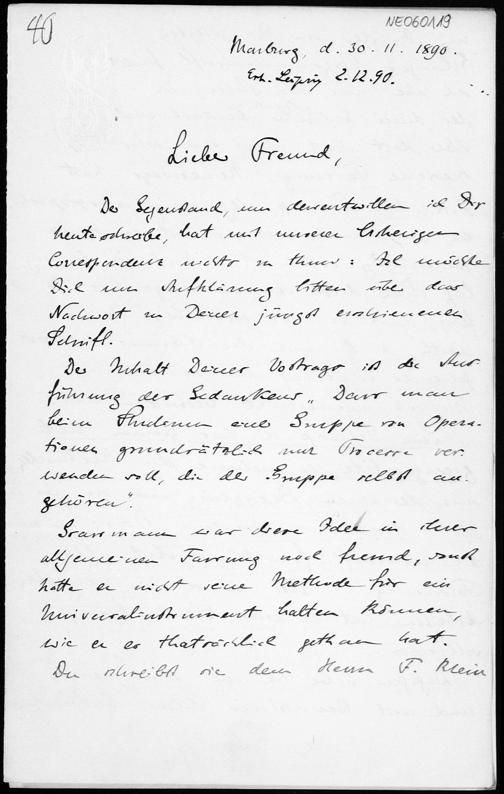 40
NE060119
Marburg, d. 30. 11. 1890.
Erh. Leipzig 2.12.90.
Lieber Freund,
Der Gegenstand, um derentwillen ich Dir
heute schreibe, hat mit unserer bisherigen
Correspondenz nichts zu thun: Ich möchte
Dich um Aufklärung bitten über das
Nachwort zu Deiner jüngst erschienenen
Schrift.
Der Inhalt Deines Vortrags ist die Aus-
führung des Gedankens „Dass man
beim Studium einer Gruppe von Opera-
tionen grundsätzlich nur Processe ver-
wenden soll, die der Gruppe selbst an-
gehören".
Grassmann war diese Idee in ihrer
allgemeinen Fassung noch fremd, sonst
hätte er nicht seine Methode für ein
Universalinstrument halten können,
wie er es thatsächlich gethan hat.
Du schreibst sie dem Herrn F. Klein